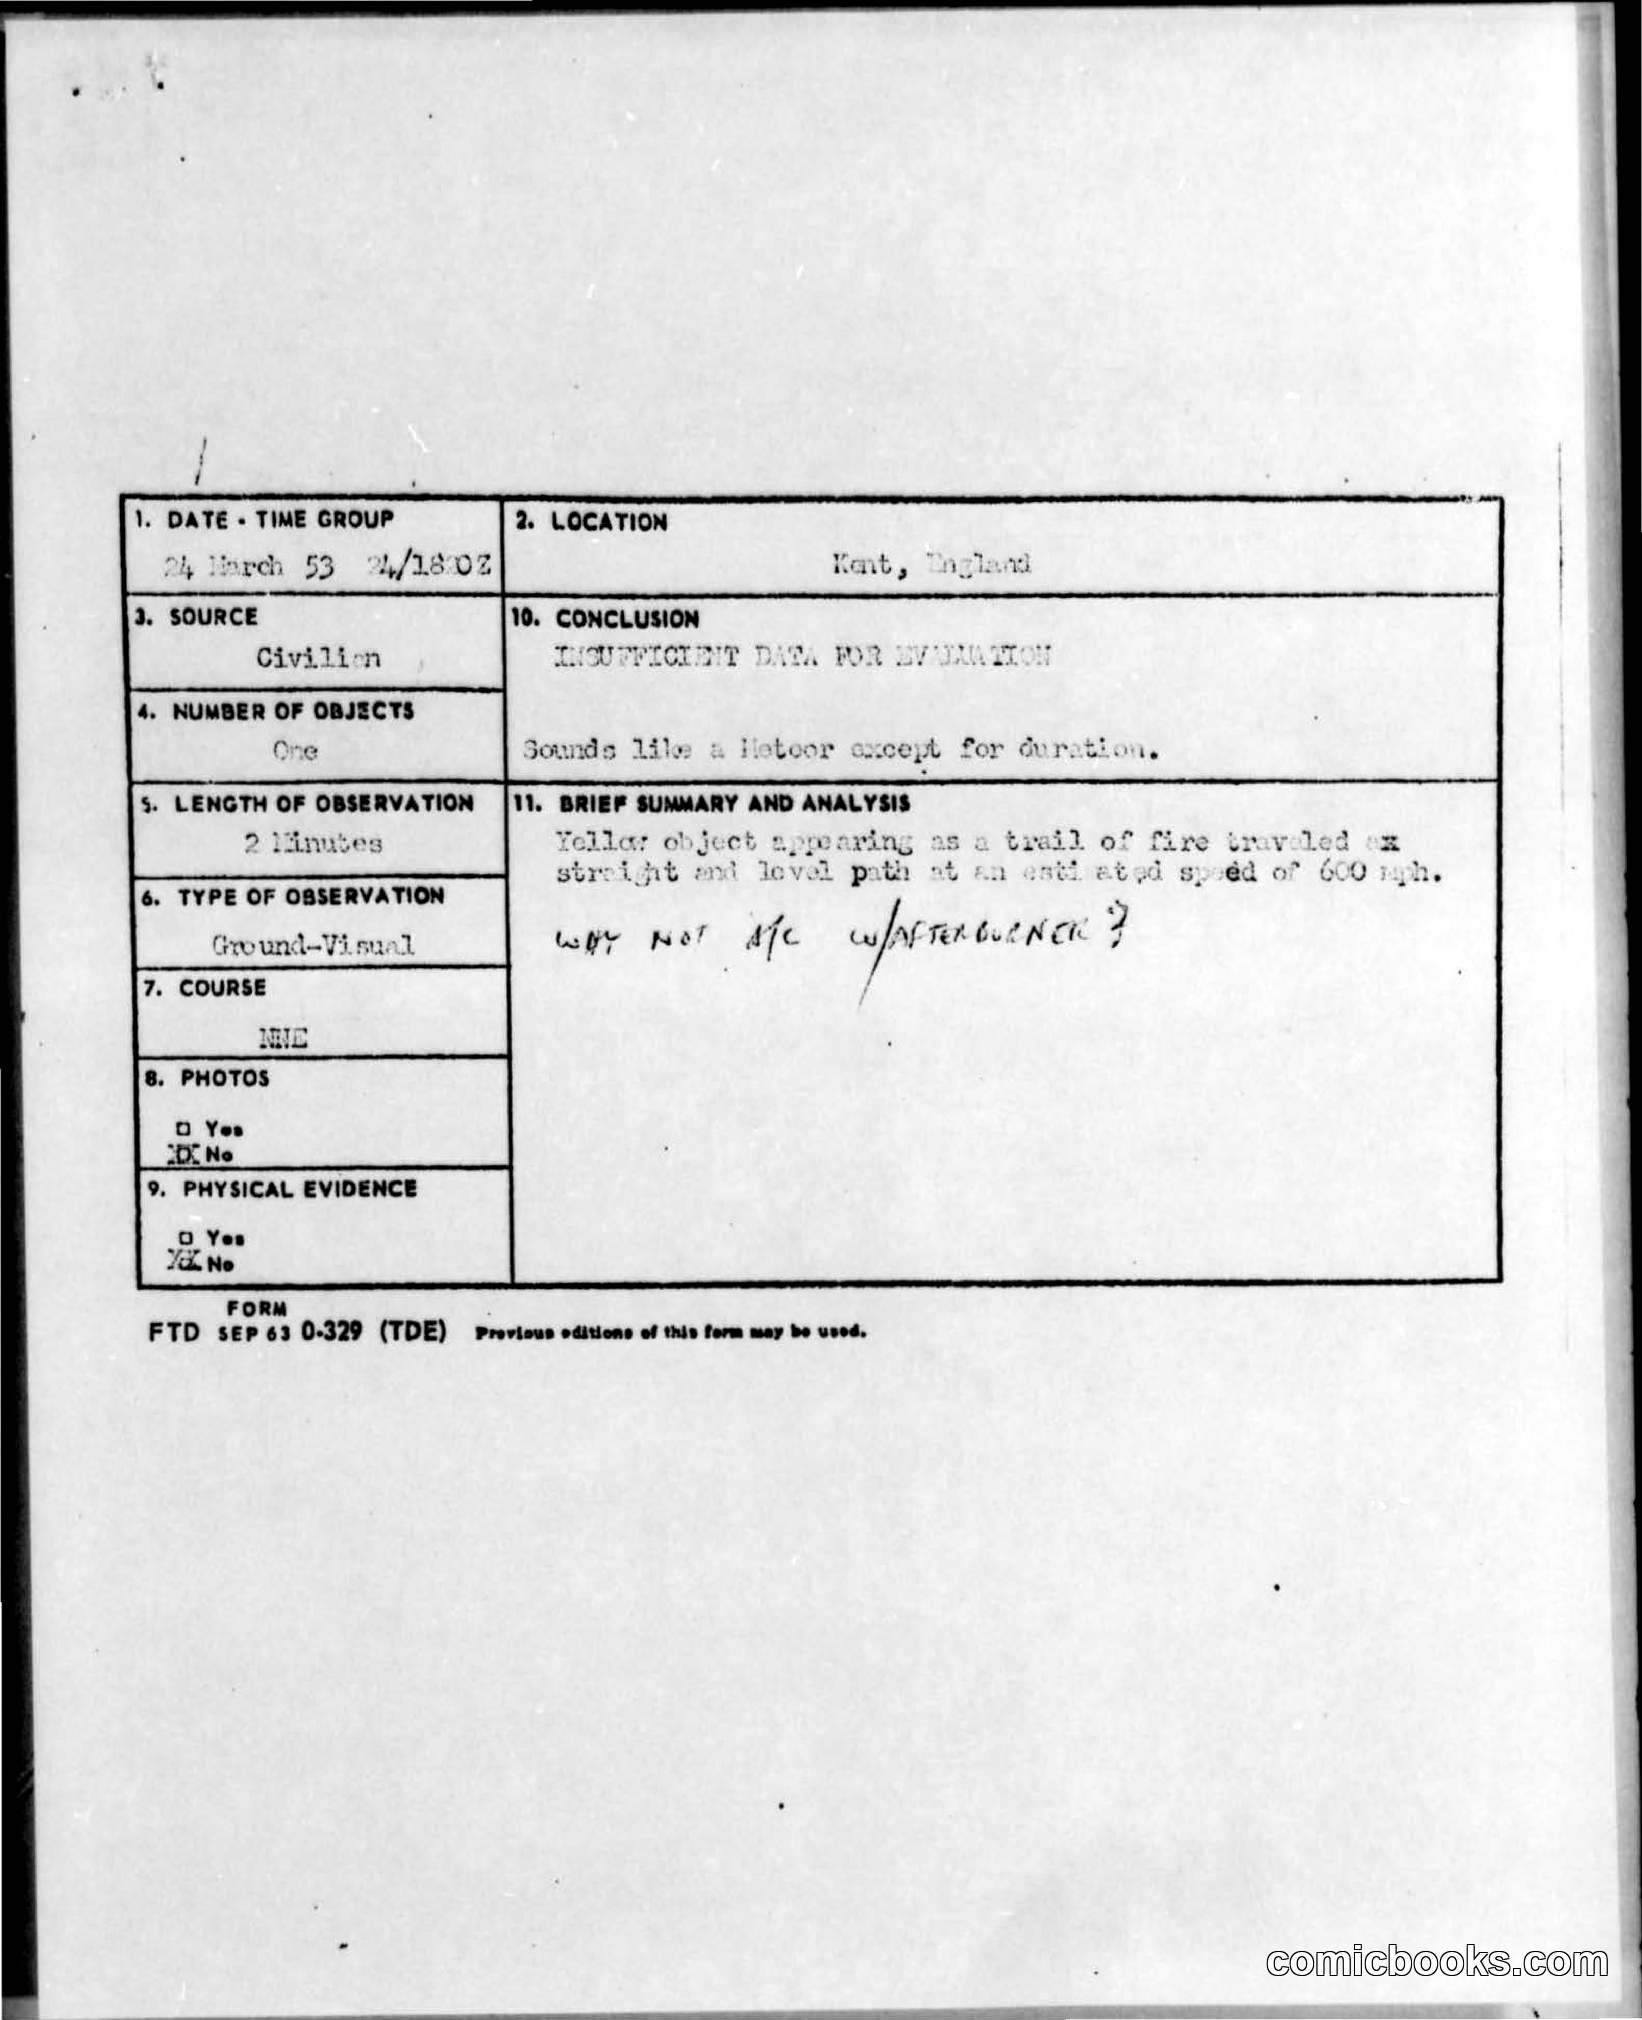 1. DATE - TIME GROUP
24 March 53 24/1820Z
2. LOCATION
Kent, England
3. SOURCE
Civilian
10. CONCLUSION
INSUFFICIENT DATA FOR EVALUATION
Sounds like a Meteor except for duration.
4. NUMBER OF OBJECTS
One
5. LENGTH OF OBSERVATION
2 Minutes
11. BRIEF SUMMARY AND ANALYSIS
Yellow object appearing as a trail of fire traveled ax
straight and level path at an estimated speed of 600 mph.
WHY NOT A/C W/AFTERBURNER?
6. TYPE OF OBSERVATION
Ground-Visual
7. COURSE
NNE
8. PHOTOS
Yes
No
9. PHYSICAL EVIDENCE
Yes
No
FORM
FTD SEP 63 0-329 (TDE) Previous editions of this form may be used.
comicbooks.com